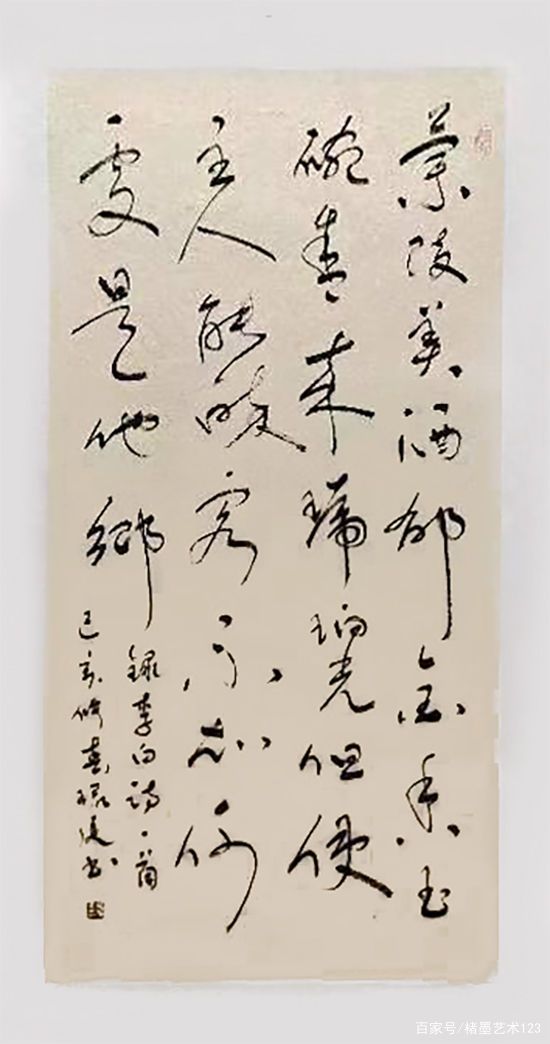 蘭陵美酒郁金香玉
碗盛来琥珀光但使
主人能醉客不知何
處是他鄉
錄李白詩一首
己亥 春 书
百家号/楮墨艺术123